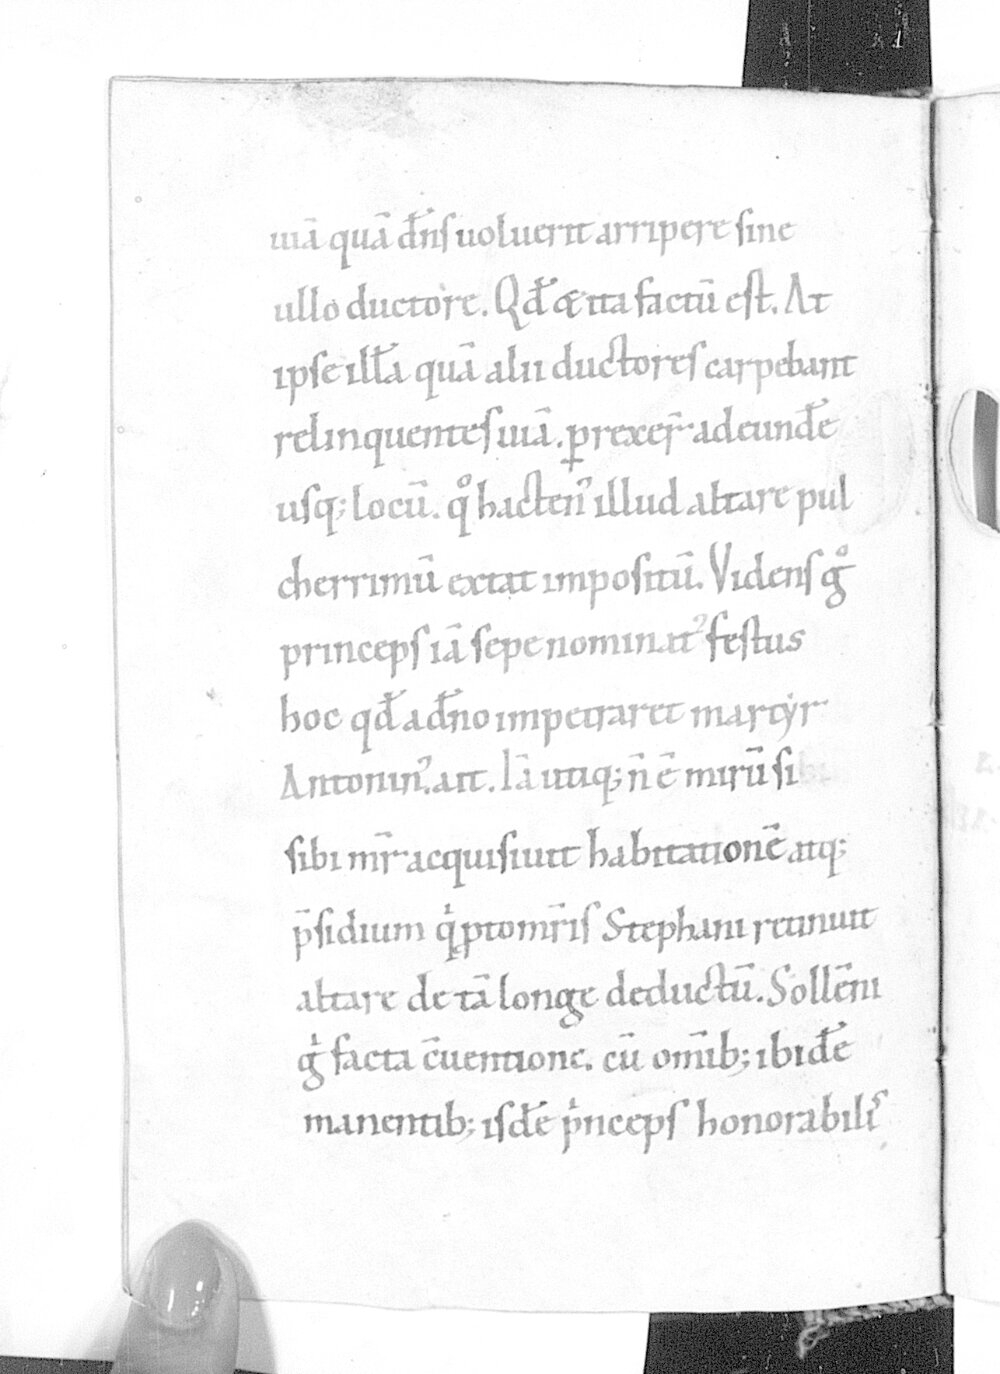 uiā quā dn̄s uoluerit arripere sine
ullo ductore. Qđ & ita factū est. At
ipse illā quā alii ductores carpebant
relinquentes uiā. ꝑrexer̄ ad eunđe
usq; locū. qͦ hacten᾽ illud altare pul
cherrimū extat impositū. Videns gͦ
princeps iā sepe nominat᾽ festus
hoc qđ a dn̄o impetraret martyr
Antonin᾽. ait. Iā utiq; n̄ ē mirū si
sibi mr̄ acquisiuit habitationē atq;
p̄sidium qⁱ ꝓtomr̄is Stephani retinuit
altare de tā longe deductū. Sollēni
gⁱ facta c̄uentione. cū om̄ib; ibiđe
manentib; isđe pⁱnceps honorabiliˢ